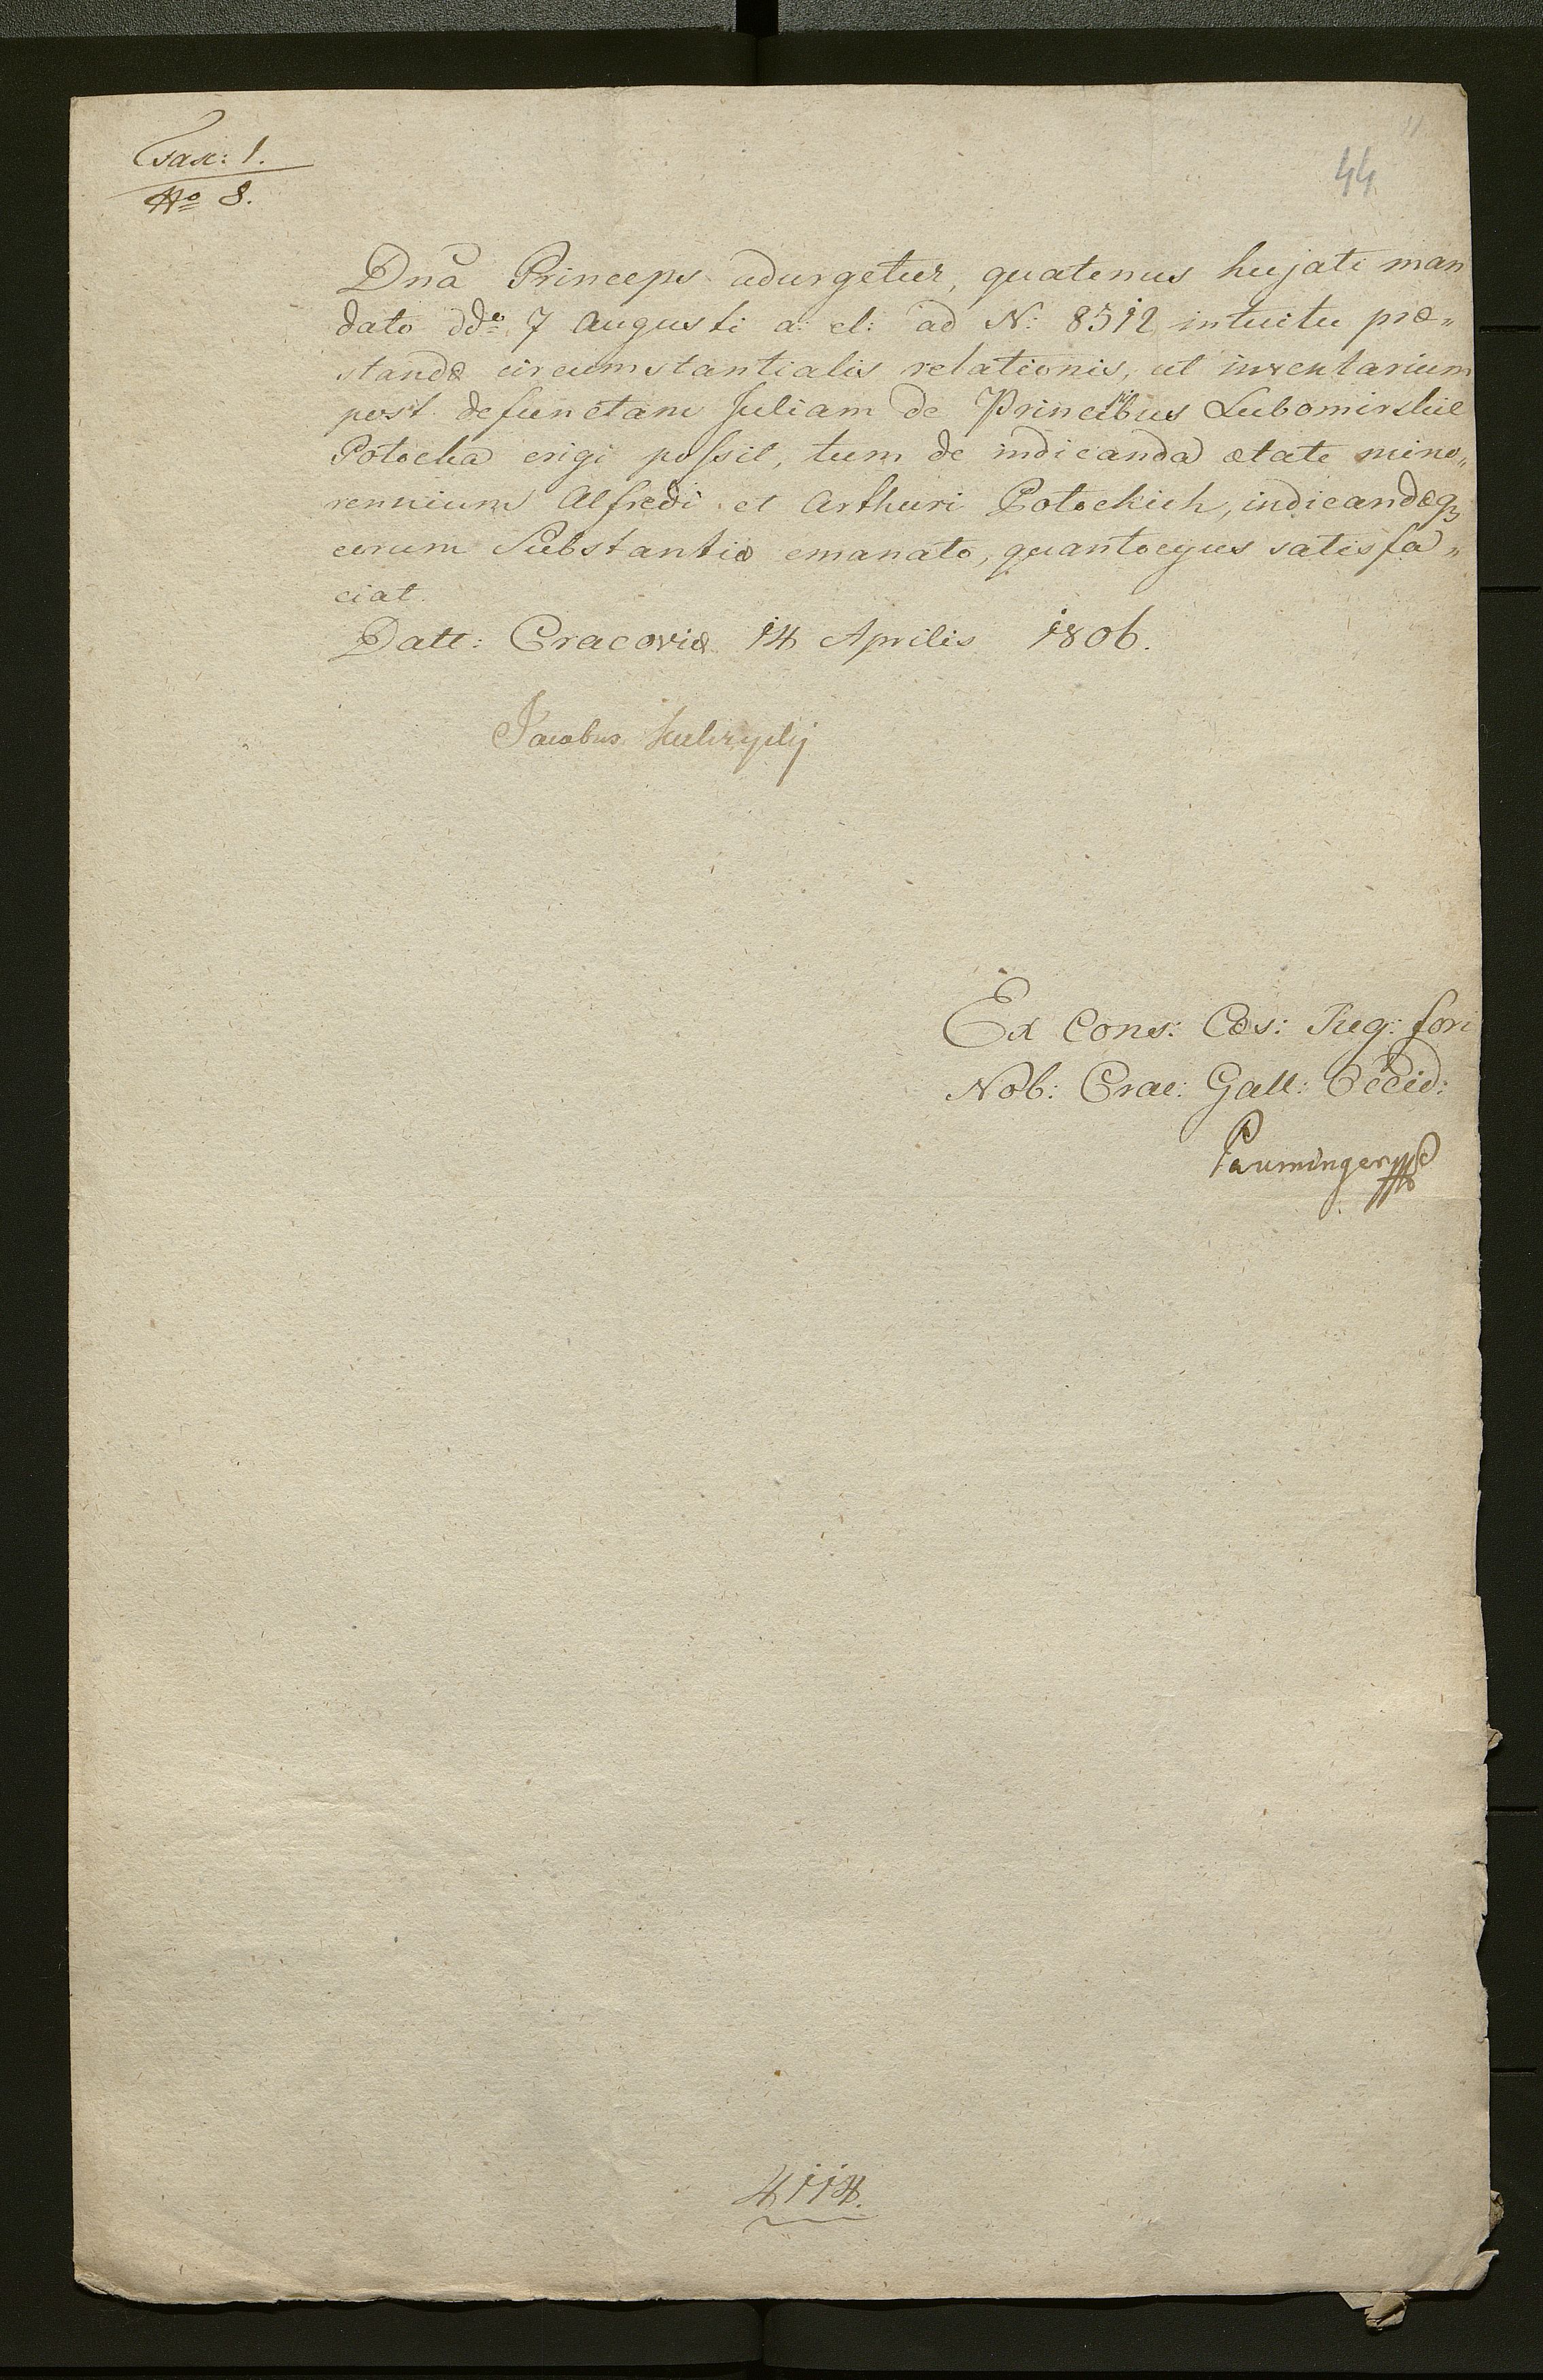 Fasc: 1.
No 8.
44
Dna Princeps adurgetur, quatenus hujati man
dato ddo 7 Augusti a: el: ad N: 8512 intuitu præ„
standæ circumstantialis relationis, ut inventarium
post defunctam Juliam de Principibus Lubomirskie
Potocka erigi possit, tum de indicanda ætate mino„
rennium Alfredi et Arthuri Potockich, indicandæq
eorum Substantiæ emanato, quantocyus satisfa„
ciat.
Datt: Cracoviæ 14 Aprilis 1806.
Jacobus
Ex Cons: Cæs: Reg: fori
Nob: Crac: Gall: Occid:
Pauminger
4114.